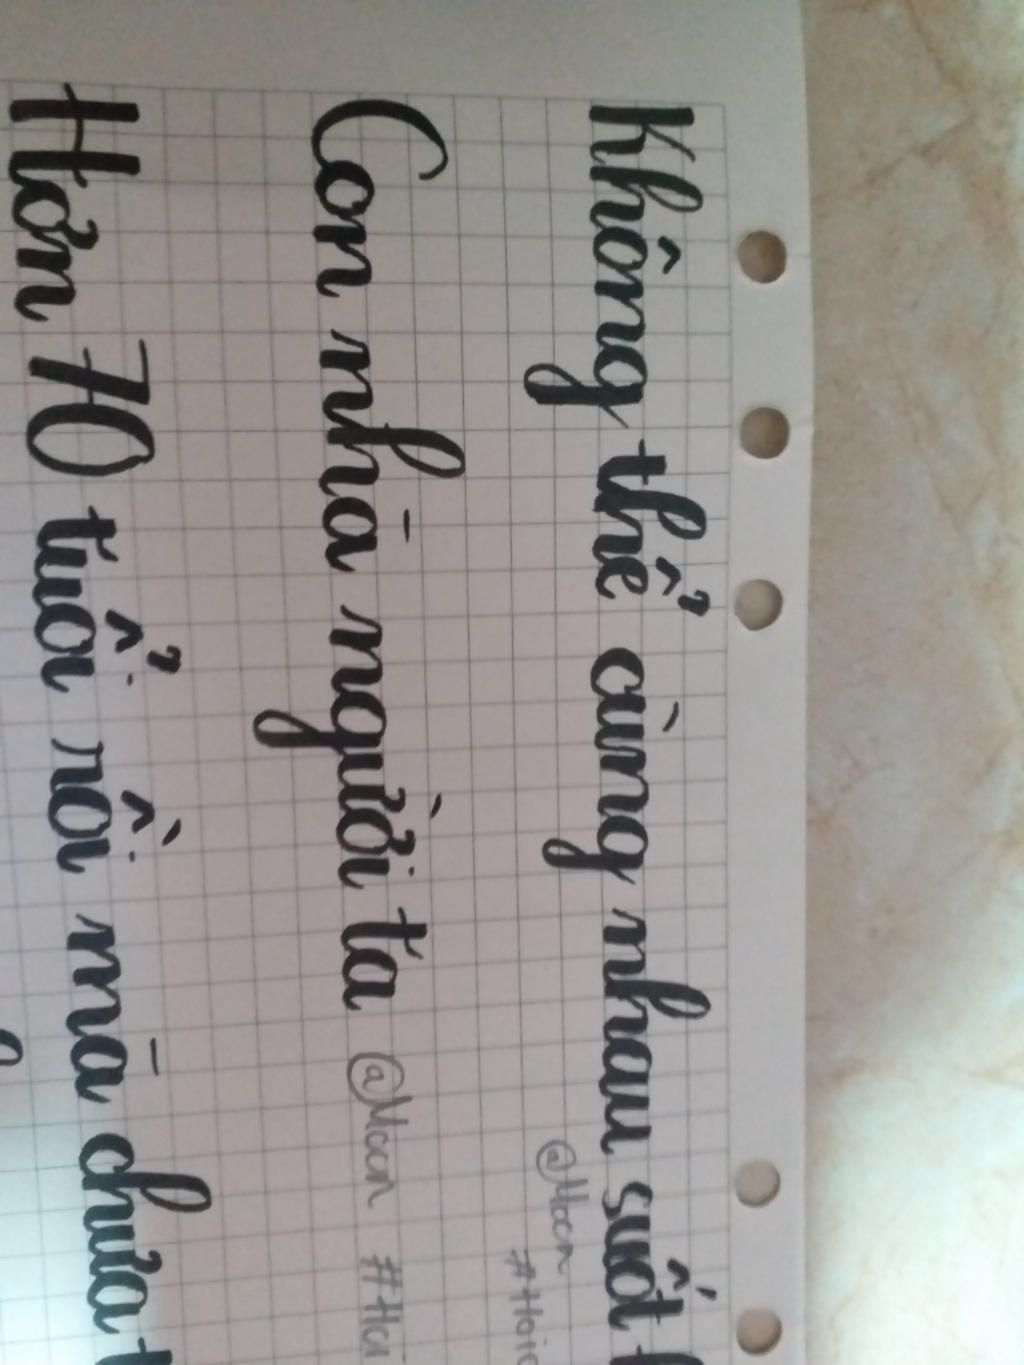 Không thể cùng nhau suốt
@Moon
Con nhà người ta @Moon
Hơn 70 tuổi rồi mà chưa